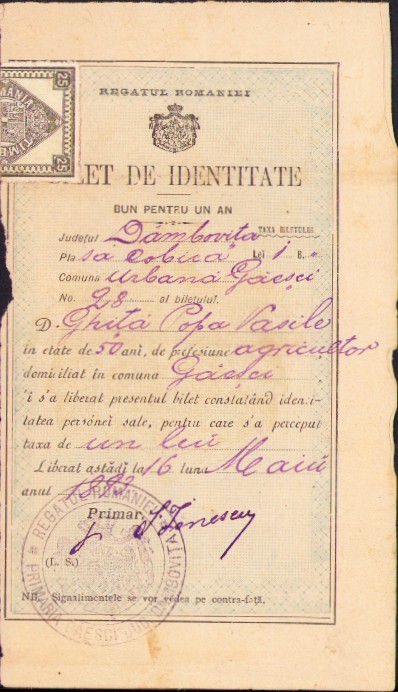 25
25
REGATUL ROMANIEI
BILET DE IDENTITATE
BUN PENTRU UN AN
Județul Dâmbovița TAXA BILETULUI
Plasa Cobiea Lei 1 B. "
Comuna urbană Găesci
No. 28 al biletului.
D. Ghiță Popa Vasile
in etate de 50 ani, de profesiune agricultor
domiciliat în comuna Găesci
'i s'a liberat presentul bilet constatând iden.i-
tatea persónei sale, pentru care s'a perceput
taxa de un leu
Liberat astădi la 16 luna Maiu
anul
Primar,
p. I. Ionescu
(L. S.)
REGATUL ROMANIEI
PRIMARIA GAESCI JUD. DAMBOVIȚA
NB. Signalimentele se vor vedea pe contra-față.